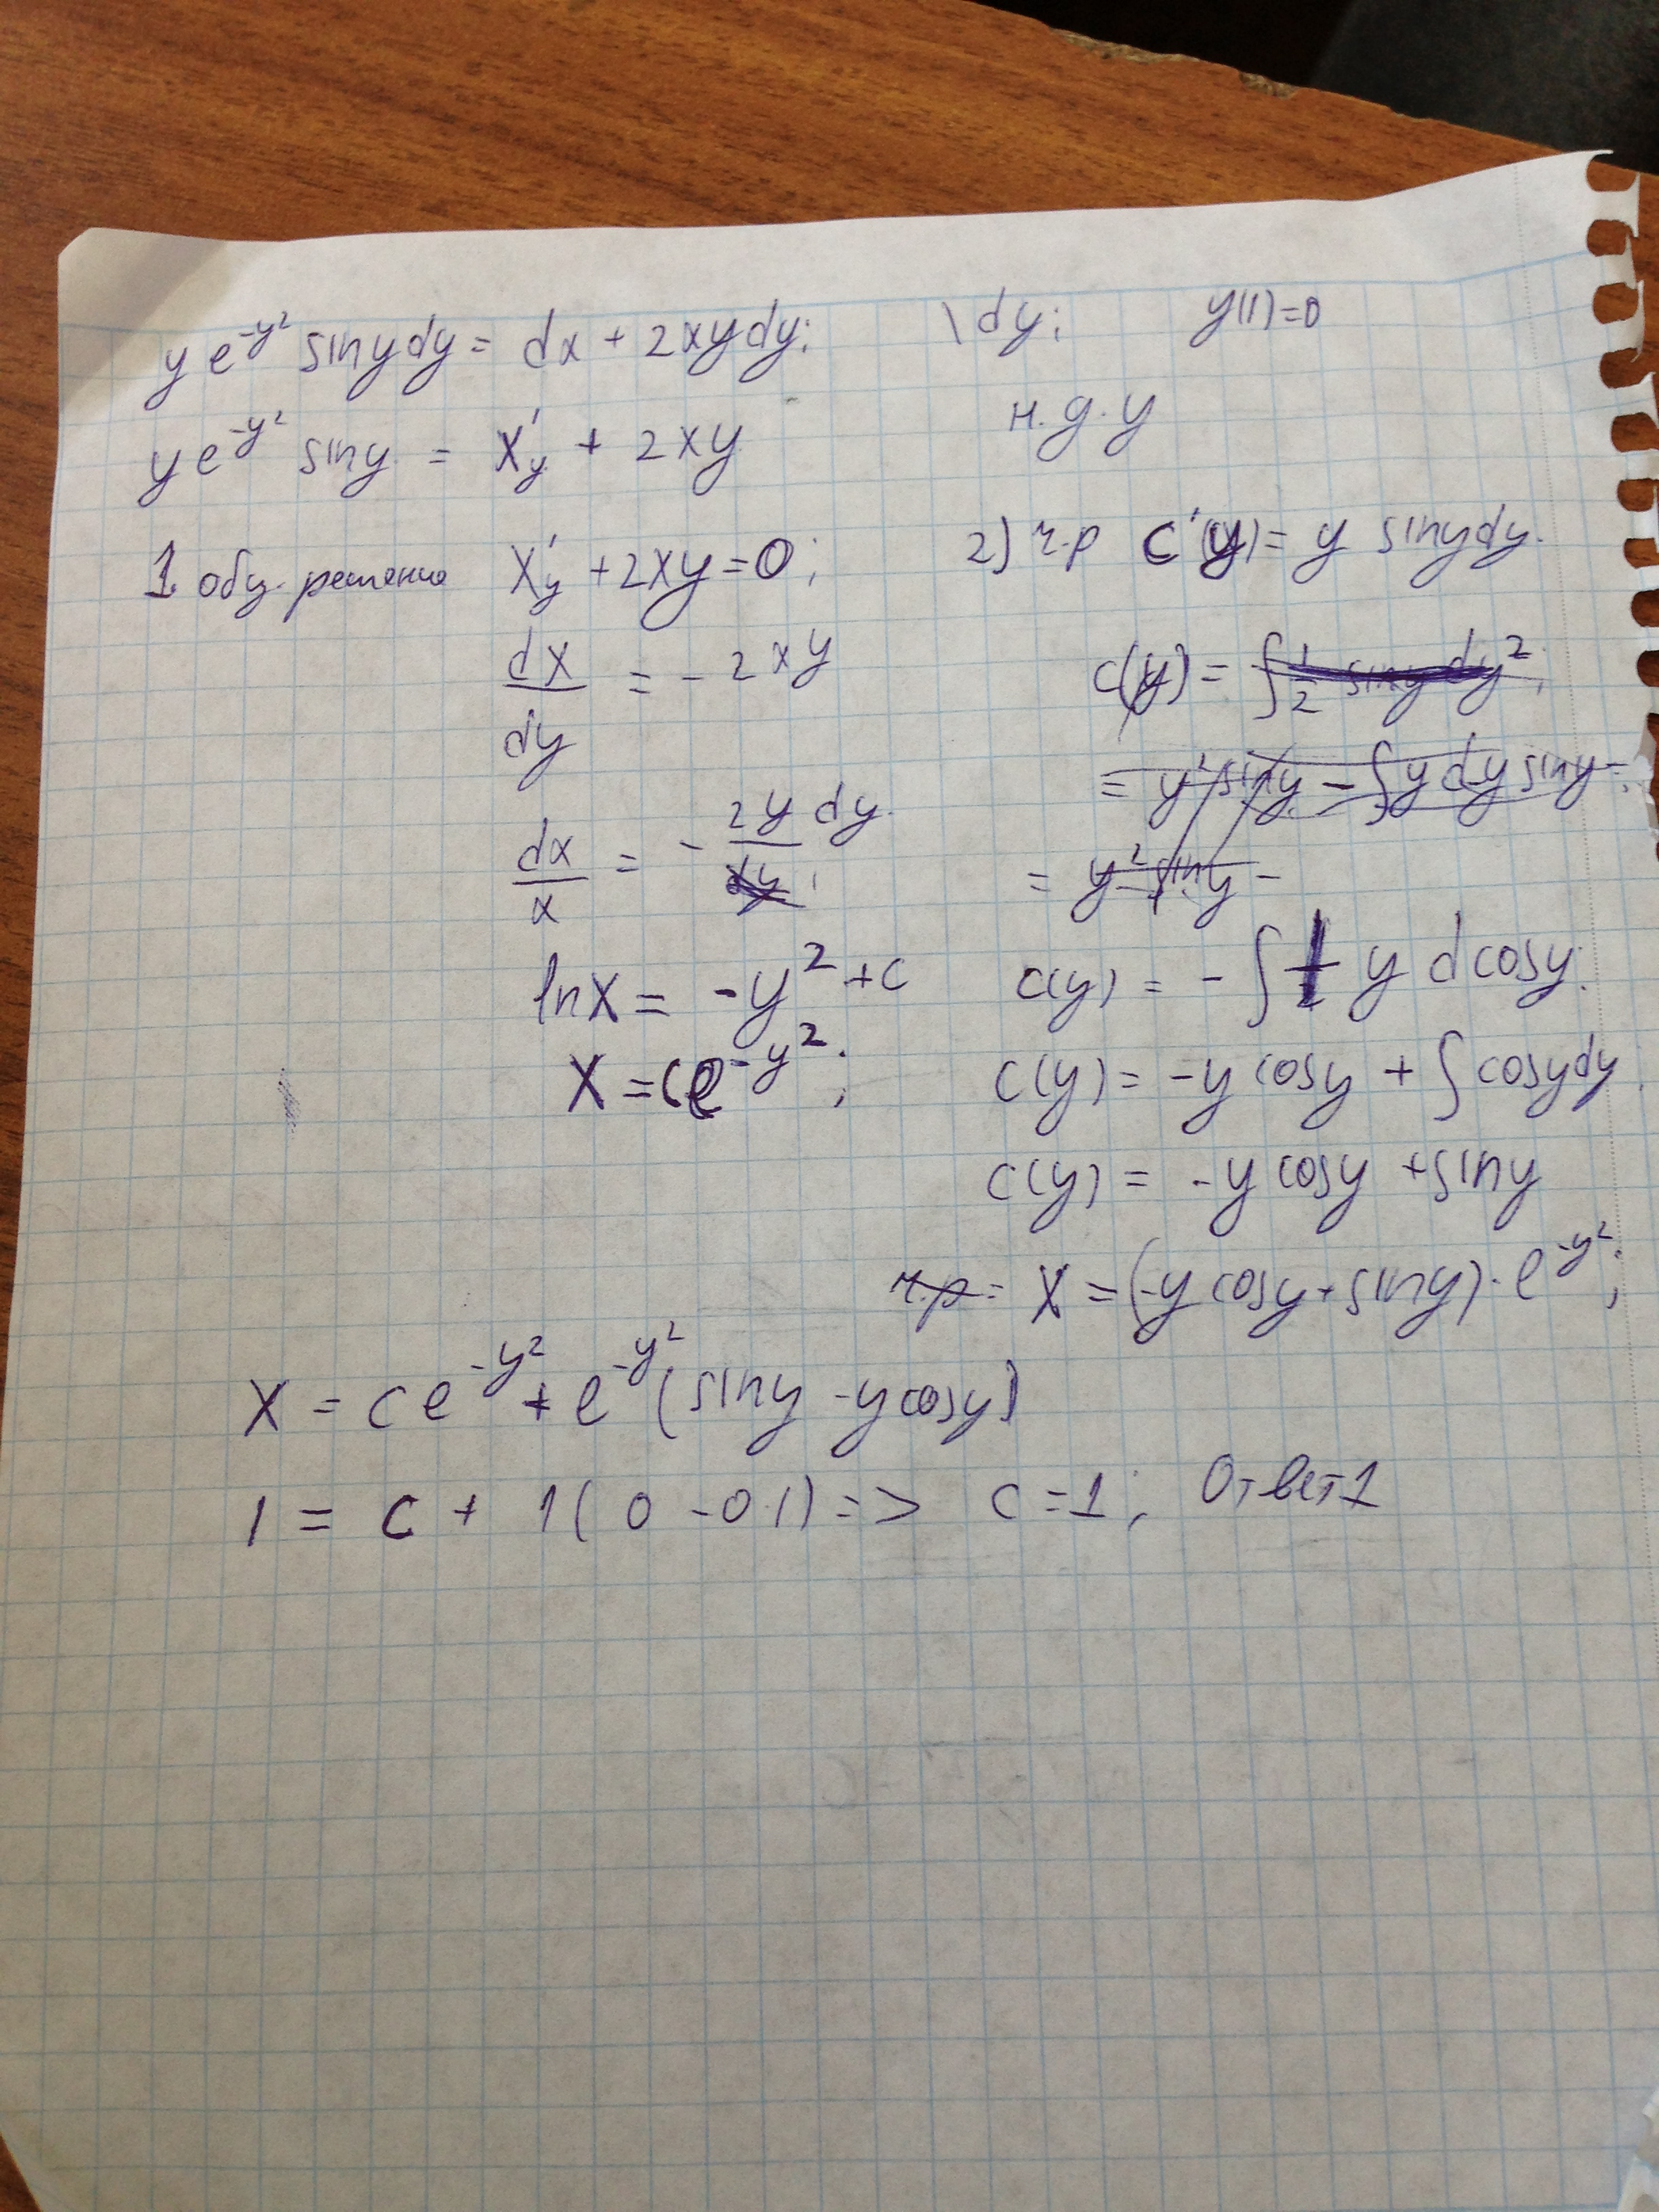 y e^{-y²} sin y dy = dx + 2xy dy; \ dy; y(1)=0
y e^{-y²} sin y = x'_y + 2xy н.д.у
1. общ. решение x'_y + 2xy = 0;
dx/dy = -2xy
dx/x = - 2y dy
ln x = -y² + c
x = c e^{-y²};
2) ч.р c'(y) = y sin y dy.
c(y) =
c(y) = - ∫ y d cos y.
c(y) = -y cos y + ∫ cos y dy
c(y) = -y cos y + sin y
ч.р = x = (-y cos y + sin y) · e^{-y²};
x = c e^{-y²} + e^{-y²} (sin y - y cos y)
1 = c + 1(0 - 0·1) => c = 1; Ответ 1